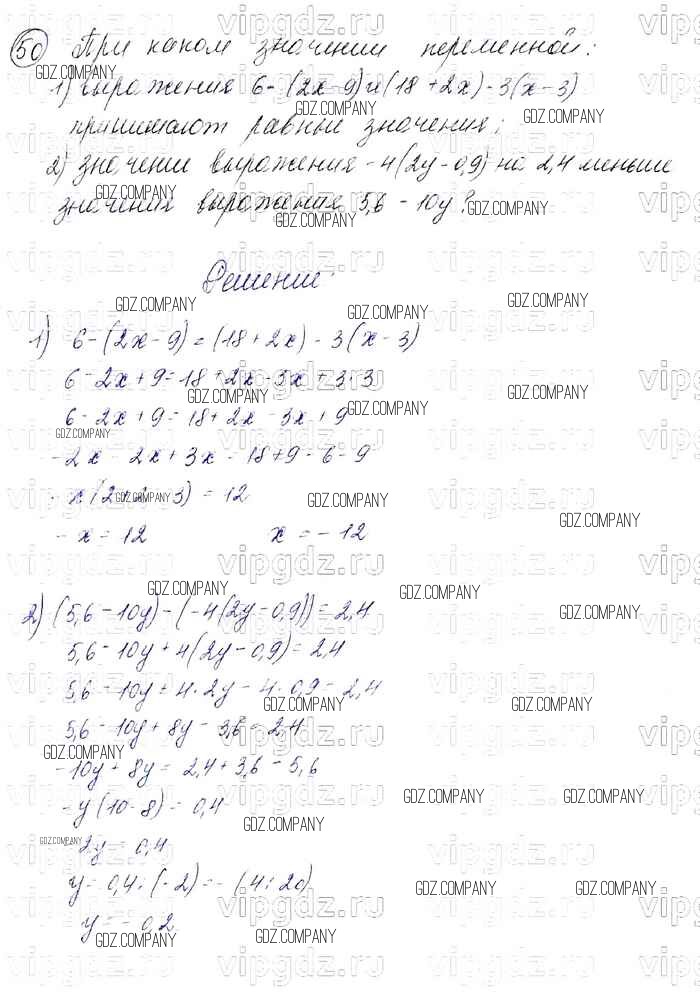 50 При каком значении переменной:
1) выражения 6-(2x-9) и (18+2x)-3(x-3)
принимают равные значения;
2) значение выражения -4(2y-0,9) на 2,4 меньше
значения выражения 5,6-10y?
Решение:
1) 6-(2x-9)=(18+2x)-3(x-3)
6-2x+9=18+2x-3x+3·3
6-2x+9=18+2x-3x+9
-2x-2x+3x=18+9-6-9
-x(2+2-3)=12
-x=12 x=-12
2) (5,6-10y)-(-4(2y-0,9))=2,4
5,6-10y+4(2y-0,9)=2,4
5,6-10y+4·2y-4·0,9=2,4
5,6-10y+8y-3,6=2,4
-10y+8y=2,4+3,6-5,6
-y(10-8)=0,4
-2y=0,4
y=0,4:(-2)=-(4:20)
y=-0,2
GDZ.COMPANY
vipgdz.ru